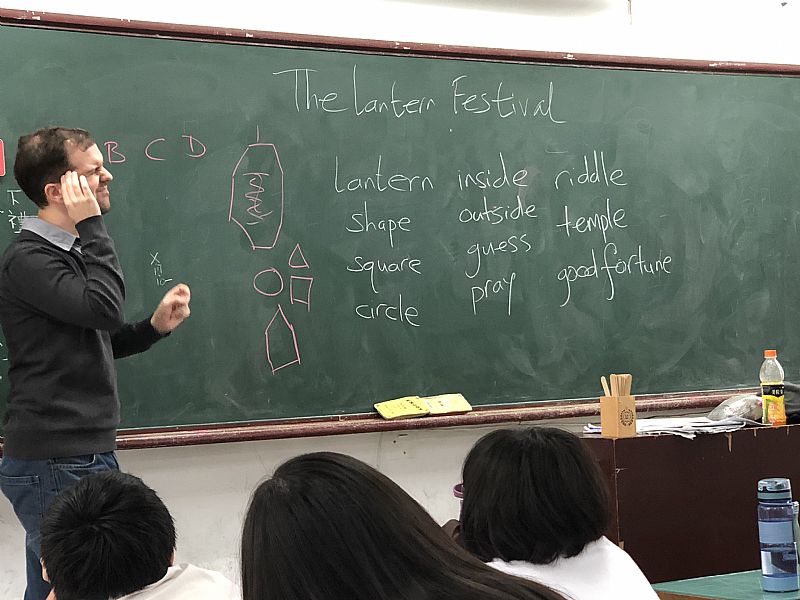 The Lantern Festival
B C D
lantern inside riddle
shape outside temple
square guess good fortune
circle pray
下
禮